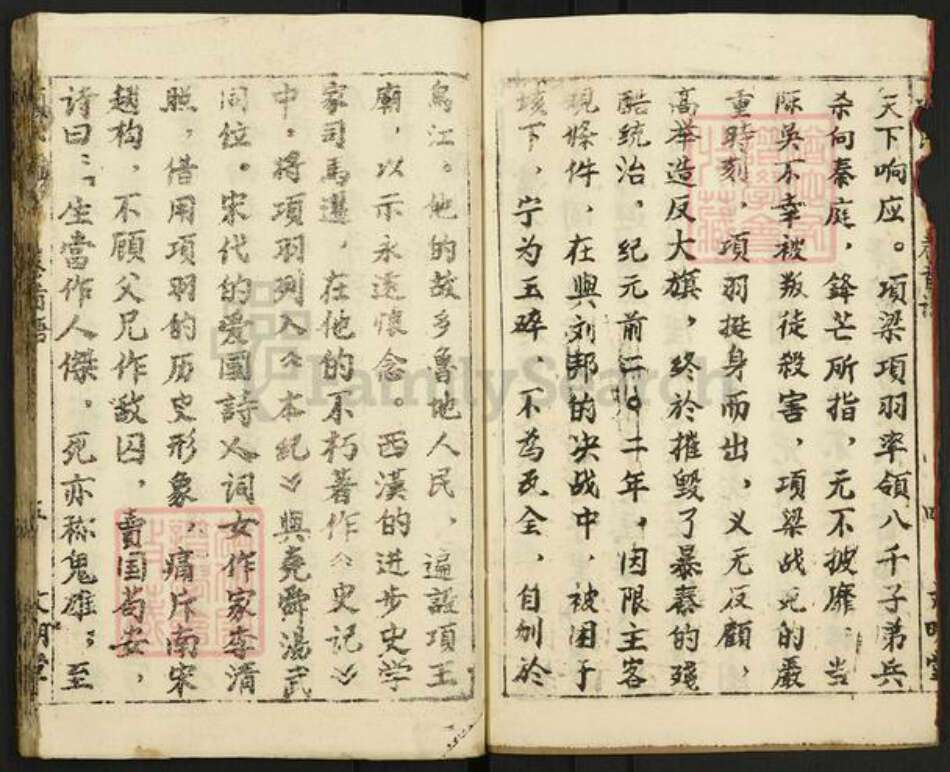 天下响应。項梁項羽率領八千子弟兵
杀向秦庭，鋒芒所指，无不披靡。当
陈吴不幸被叛徒殺害，項梁战死的嚴
重時刻，項羽挺身而出，义无反顧，
高举造反大旗，终於摧毁了暴秦的殘
酷统治。纪元前二〇二年，因限主客
現條件，在與刘邦的决战中，被困于
垓下，宁为玉碎、不為瓦全，自刎於
烏江。他的故乡魯地人民，遍設項王
廟，以示永远懷念。西漢的进步史学
家司馬遷，在他的不朽著作《史记》
中。将項羽列入《本紀》與堯舜湯武
同位。宋代的爱國詩人词女作家李清
照，借用項羽的历史形象，痛斥南宋
趙构，不顾父兄作敌囚，賣国苟安，
诗曰：「生當作人傑，死亦称鬼雄；至
文明堂
FamilySearch